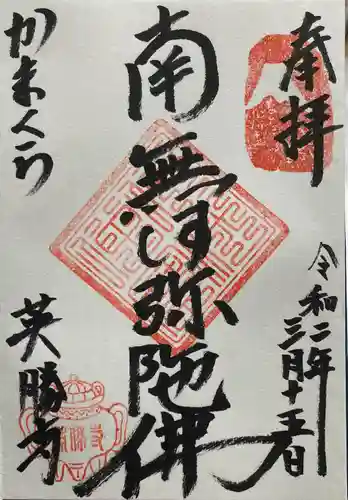 奉拝
令和二年
三月十五日
南無阿弥陀佛
かまくら
英勝寺